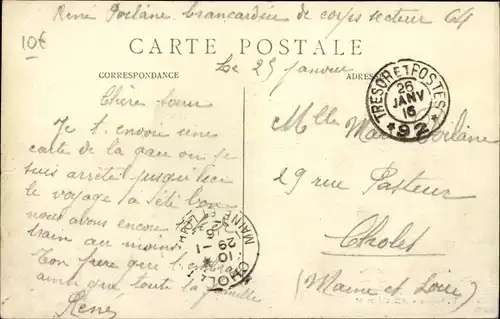 René Poilâne brancardier de corps secteur 64
10€
CARTE POSTALE
CORRESPONDANCE
Le 25 janvier
ADRESSE
TRESOR ET POSTES
26
JANV
16
* 92 *
Chère sœur
Je t'envoie une
carte de la gare où je
suis arrêté jusqu'ici
le voyage a été bon
nous avons encore
train au moins.
Ton frère qui t'embrasse
ainsi que toute la famille
René
Mlle Marie Poilâne
29 rue Pasteur
Cholet
(Maine et Loire)
CHOLET
MAINE ET LOIRE
10
29 -1